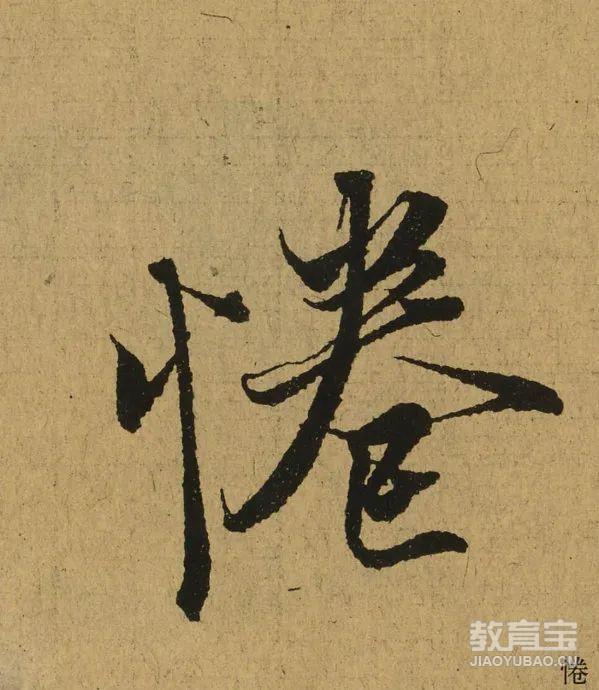 惓
教育宝
JIAOYUBAO.COM
惓